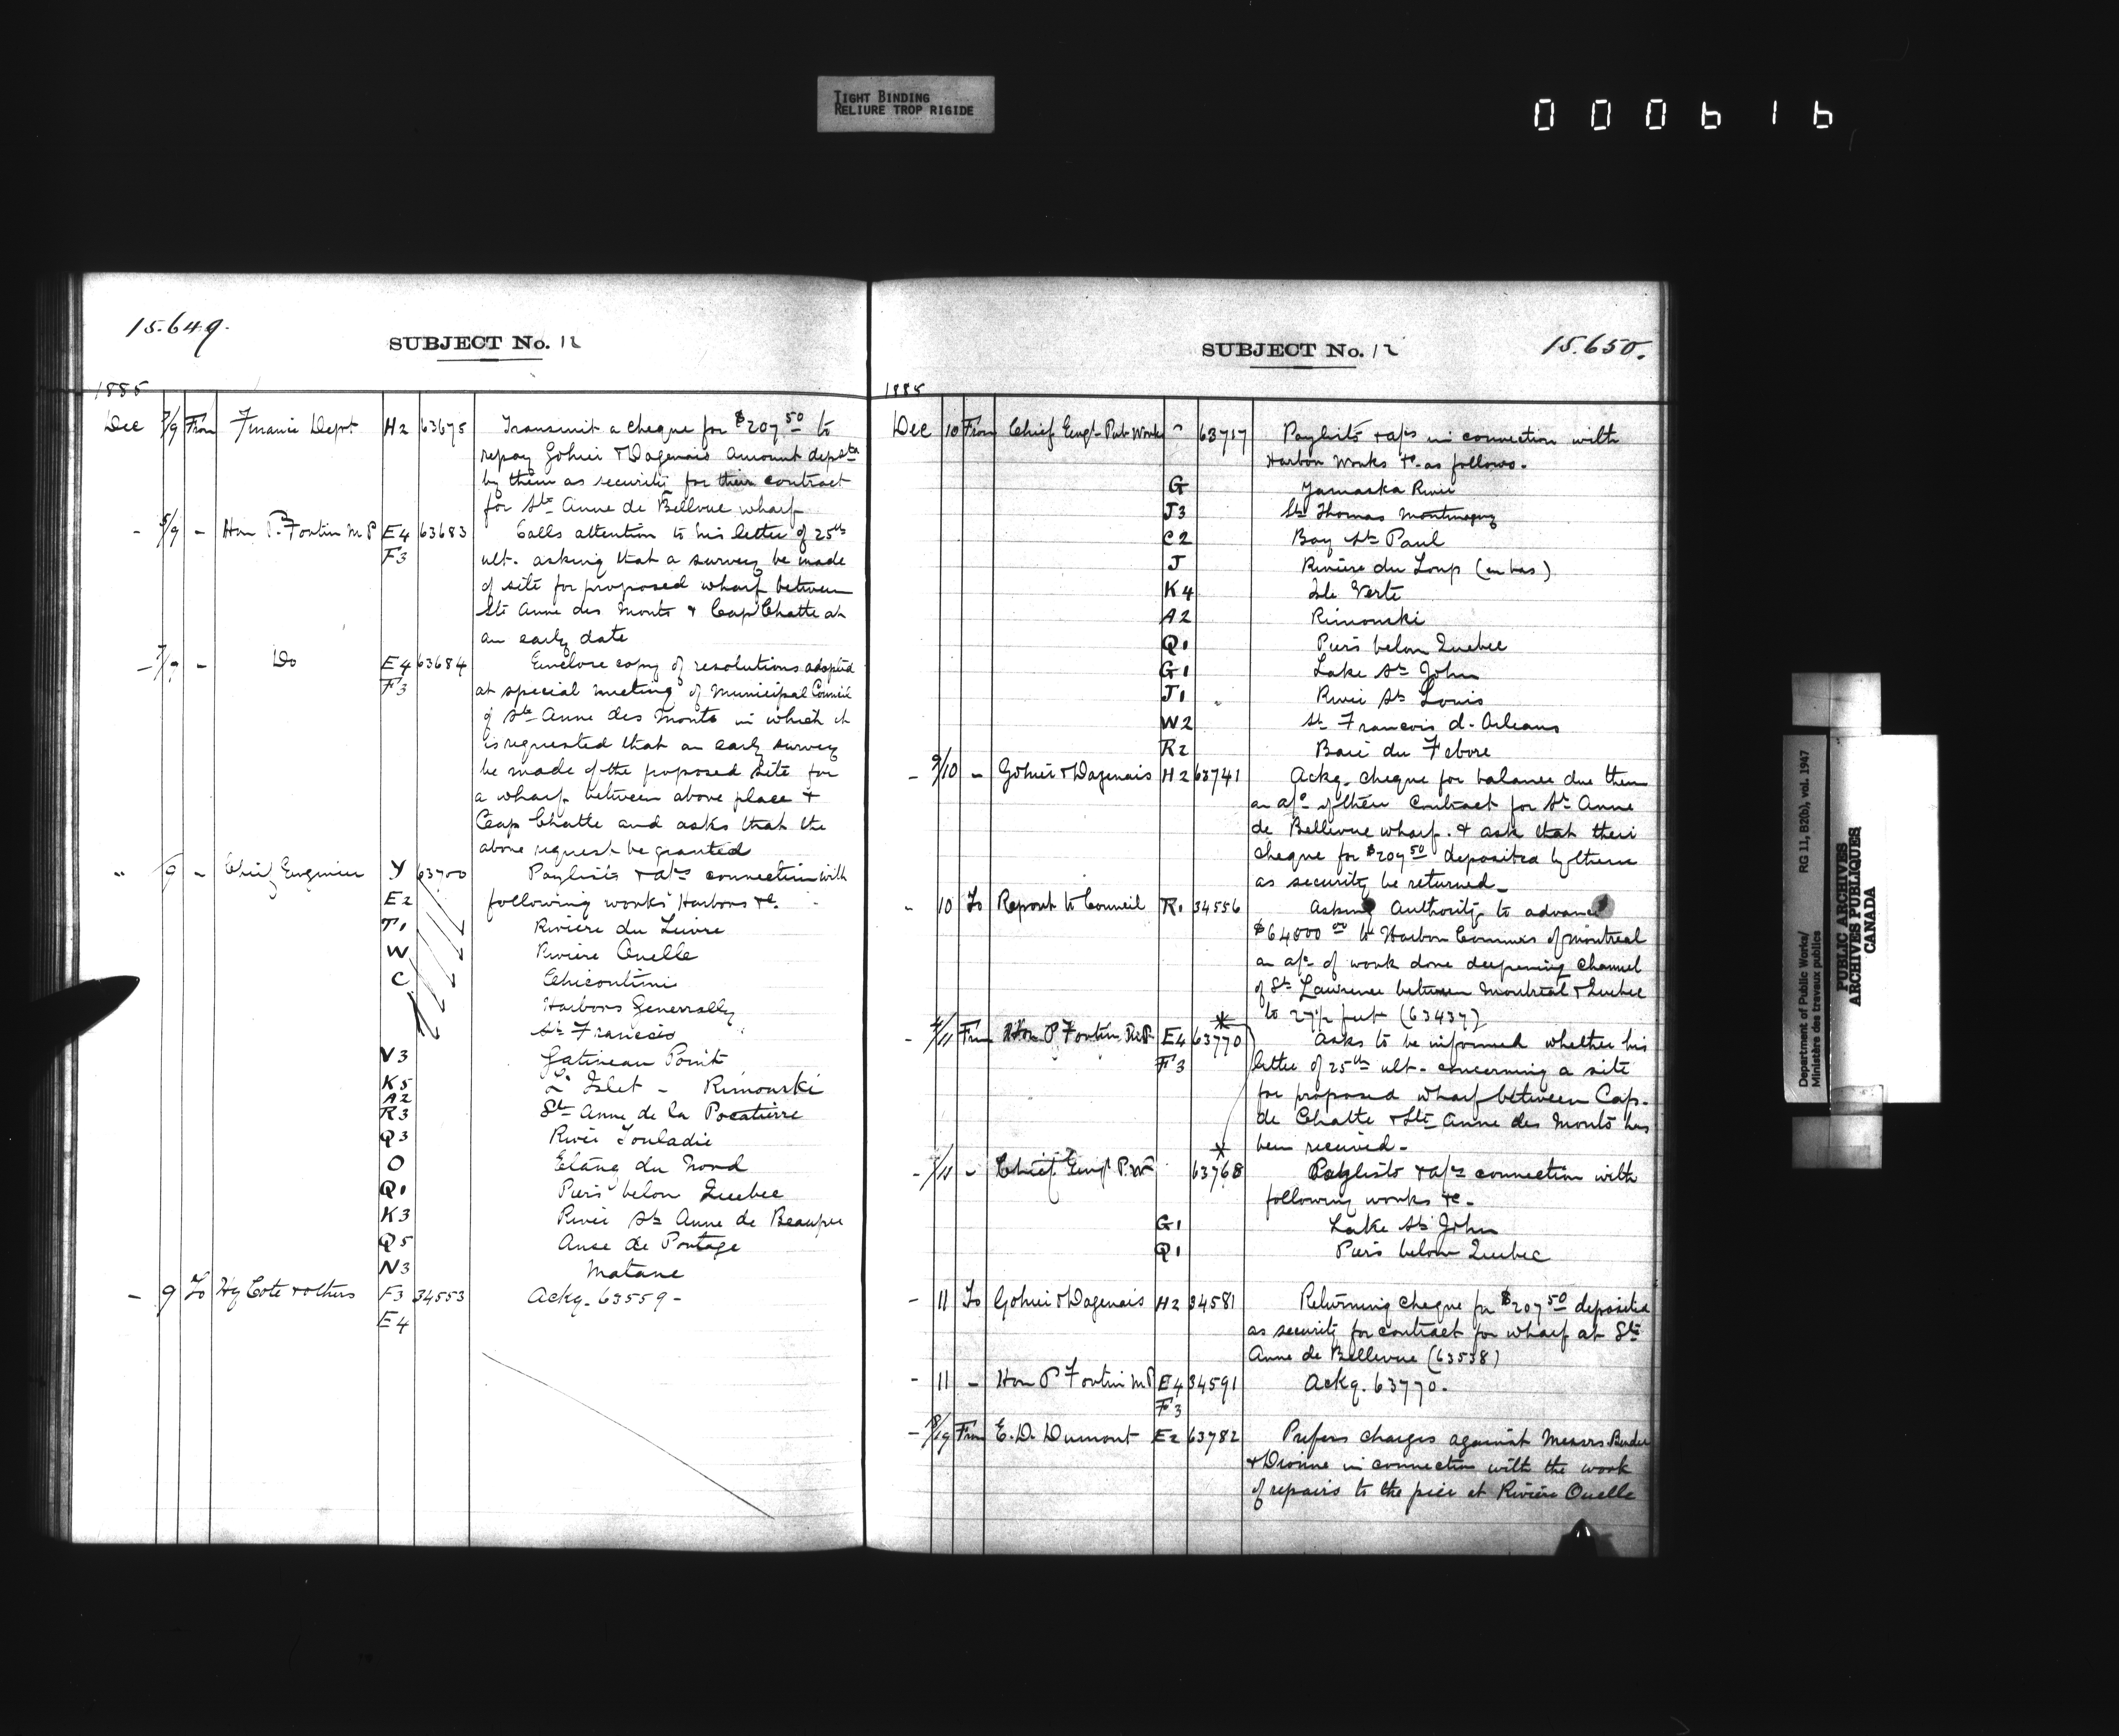 TIGHT BINDING
RELIURE TROP RIGIDE
000616
15.649.
SUBJECT No. 12
1885
Dec 7/9 From Finance Dept H2 63675 Transmit a cheque for $207 50 to
repay Gohier & Dagenais amount depstd
by them as security for their contract
for Ste Anne de Bellevue wharf
- 5/9 - Hon P. Fortin M P E4 63683 Calls attention to his letter of 25th
F3 ult. asking that a survey be made
of site for proposed wharf between
Ste Anne des Monts & Cap Chatte at
an early date
- 7/9 - Do E4 63684 Enclose copy of resolutions adopted
F3 at special meeting of Municipal Council
of Ste Anne des Monts in which it
is requested that an early survey
be made of the proposed site for
a wharf between above place &
Cap Chatte and asks that the
above request be granted
" 9 - Chief Engineer Y 63700 Paylists & a/cs connection with
E2 following works Harbors &c.
T1 Rivière du Lievre
W Rivière Ouelle
C Chicoutimi
Harbors Generally
St Francis
V3 Gatineau Point
K5 L'Islet - Rimouski
A2
R3 Ste Anne de la Pocatiere
Q3 River Touladie
O Etang du Nord
Q1 Piers below Quebec
K3 River Ste Anne de Beaupre
Q5 Anse de Portage
N3 Matane
- 9 To Hy Cote & others F3 34553 Ackg. 63559 -
E4
SUBJECT No. 12
15.650.
1885
Dec 10 From Chief Engr Pub Works " 63717 Paylists & a/cs in connection with
Harbor Works &c. as follows.
G Yamaska River
J3 St Thomas Montmagny
C2 Bay St Paul
J Rivière du Loup (en bas)
K4 Isle Verte
A2 Rimouski
Q1 Piers below Quebec
G1 Lake St John
J1 River St Louis
W2 St Francois d. Orleans
R2 Baie du Febvre
- 9/10 - Gohier & Dagenais H2 63741 Ackg. cheque for balance due them
on a/c of their contract for St Anne
de Bellevue wharf. & ask that their
cheque for $207 50 deposited by them
as security be returned_
- 10 To Report to Council R1 34556 Asking Authority to advance
$64000 00 to Harbor Commrs of Montreal
on a/c of work done deepening channel
of St Lawrence between Montreal & Quebec
to 27½ feet (63437)
*
- 4/11 From Hon P Fortin M.P. E4 63770 Asks to be informed whether his
F3 letter of 25th ult. concerning a site
for proposed wharf between Cap.
de Chatte & Ste Anne des Monts has
been received -
*
- 7/11 - Chief Engr P.W 63768 Paylists & a/cs connection with
following works &c.
G1 Lake St John
Q1 Piers below Quebec
- 11 To Gohier & Dagenais H2 34581 Returning cheque for $207 50 deposited
as security for contract for wharf at Ste
Anne de Bellevue (63538)
- 11 - Hon P Fortin M P E4 34591 Ackg. 63770.
F3
- From E. D. Dumont E2 63782 Prefers charges against Messrs Bender
& Dionne in connection with the work
of repairs to the pier at Rivière Ouelle
Department of Public Works/
Ministère des travaux publics
RG 11, B2(b), vol. 1947
PUBLIC ARCHIVES
ARCHIVES PUBLIQUES
CANADA